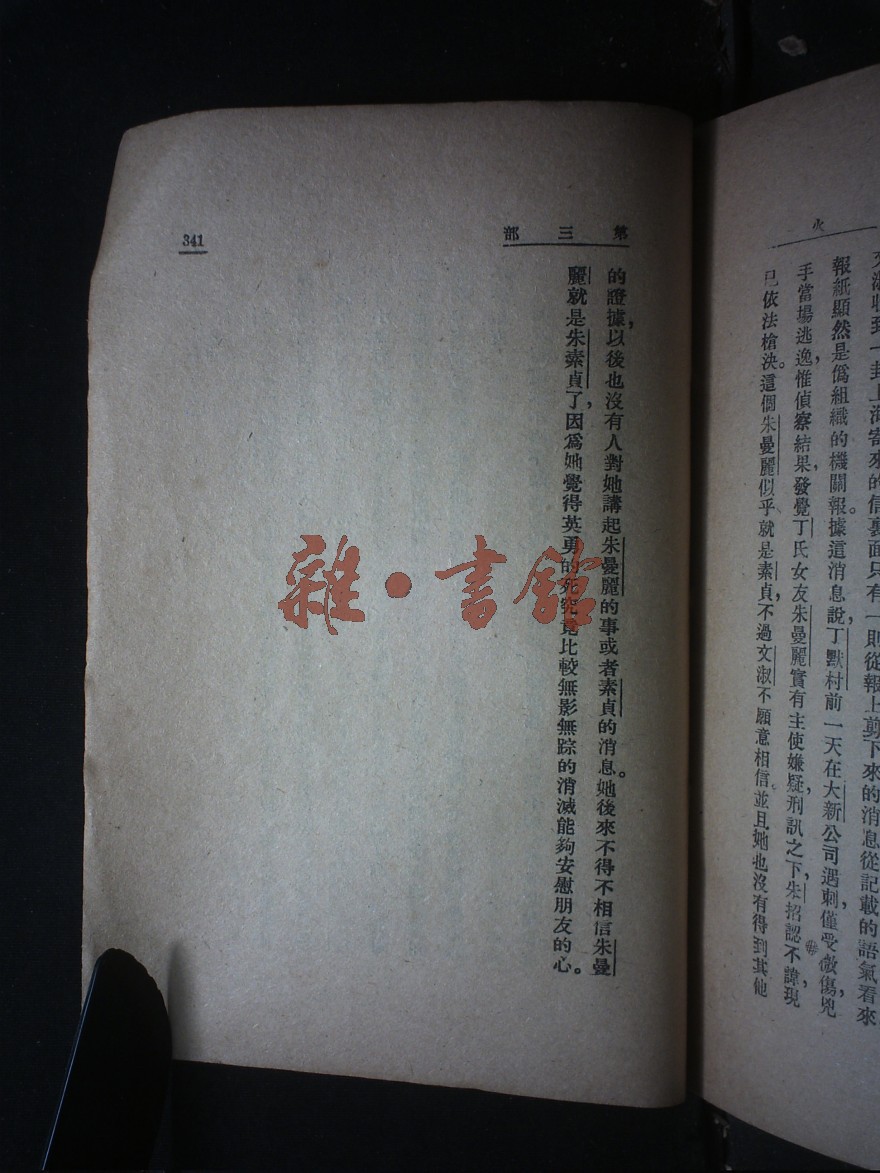 火
文淑收到一封上海寄來的信裏面只有一則從報上剪下來的消息從記載的語氣看來
報紙顯然是僞組織的機關報。據這消息說，丁默村前一天在大新公司遇刺，僅受微傷，兇
手當場逃逸，惟偵察結果，發覺丁氏女友朱曼麗實有主使嫌疑，刑訊之下，朱招認不諱，現
已依法槍決。這個朱曼麗似乎就是素貞，不過文淑不願意相信，並且她也沒有得到其他
第三部
的證據，以後也沒有人對她講起朱曼麗的事或者素貞的消息。她後來不得不相信朱曼
麗就是朱素貞了，因爲她覺得英勇的死究竟比較無影無踪的消滅能夠安慰朋友的心。
341
雜·書館